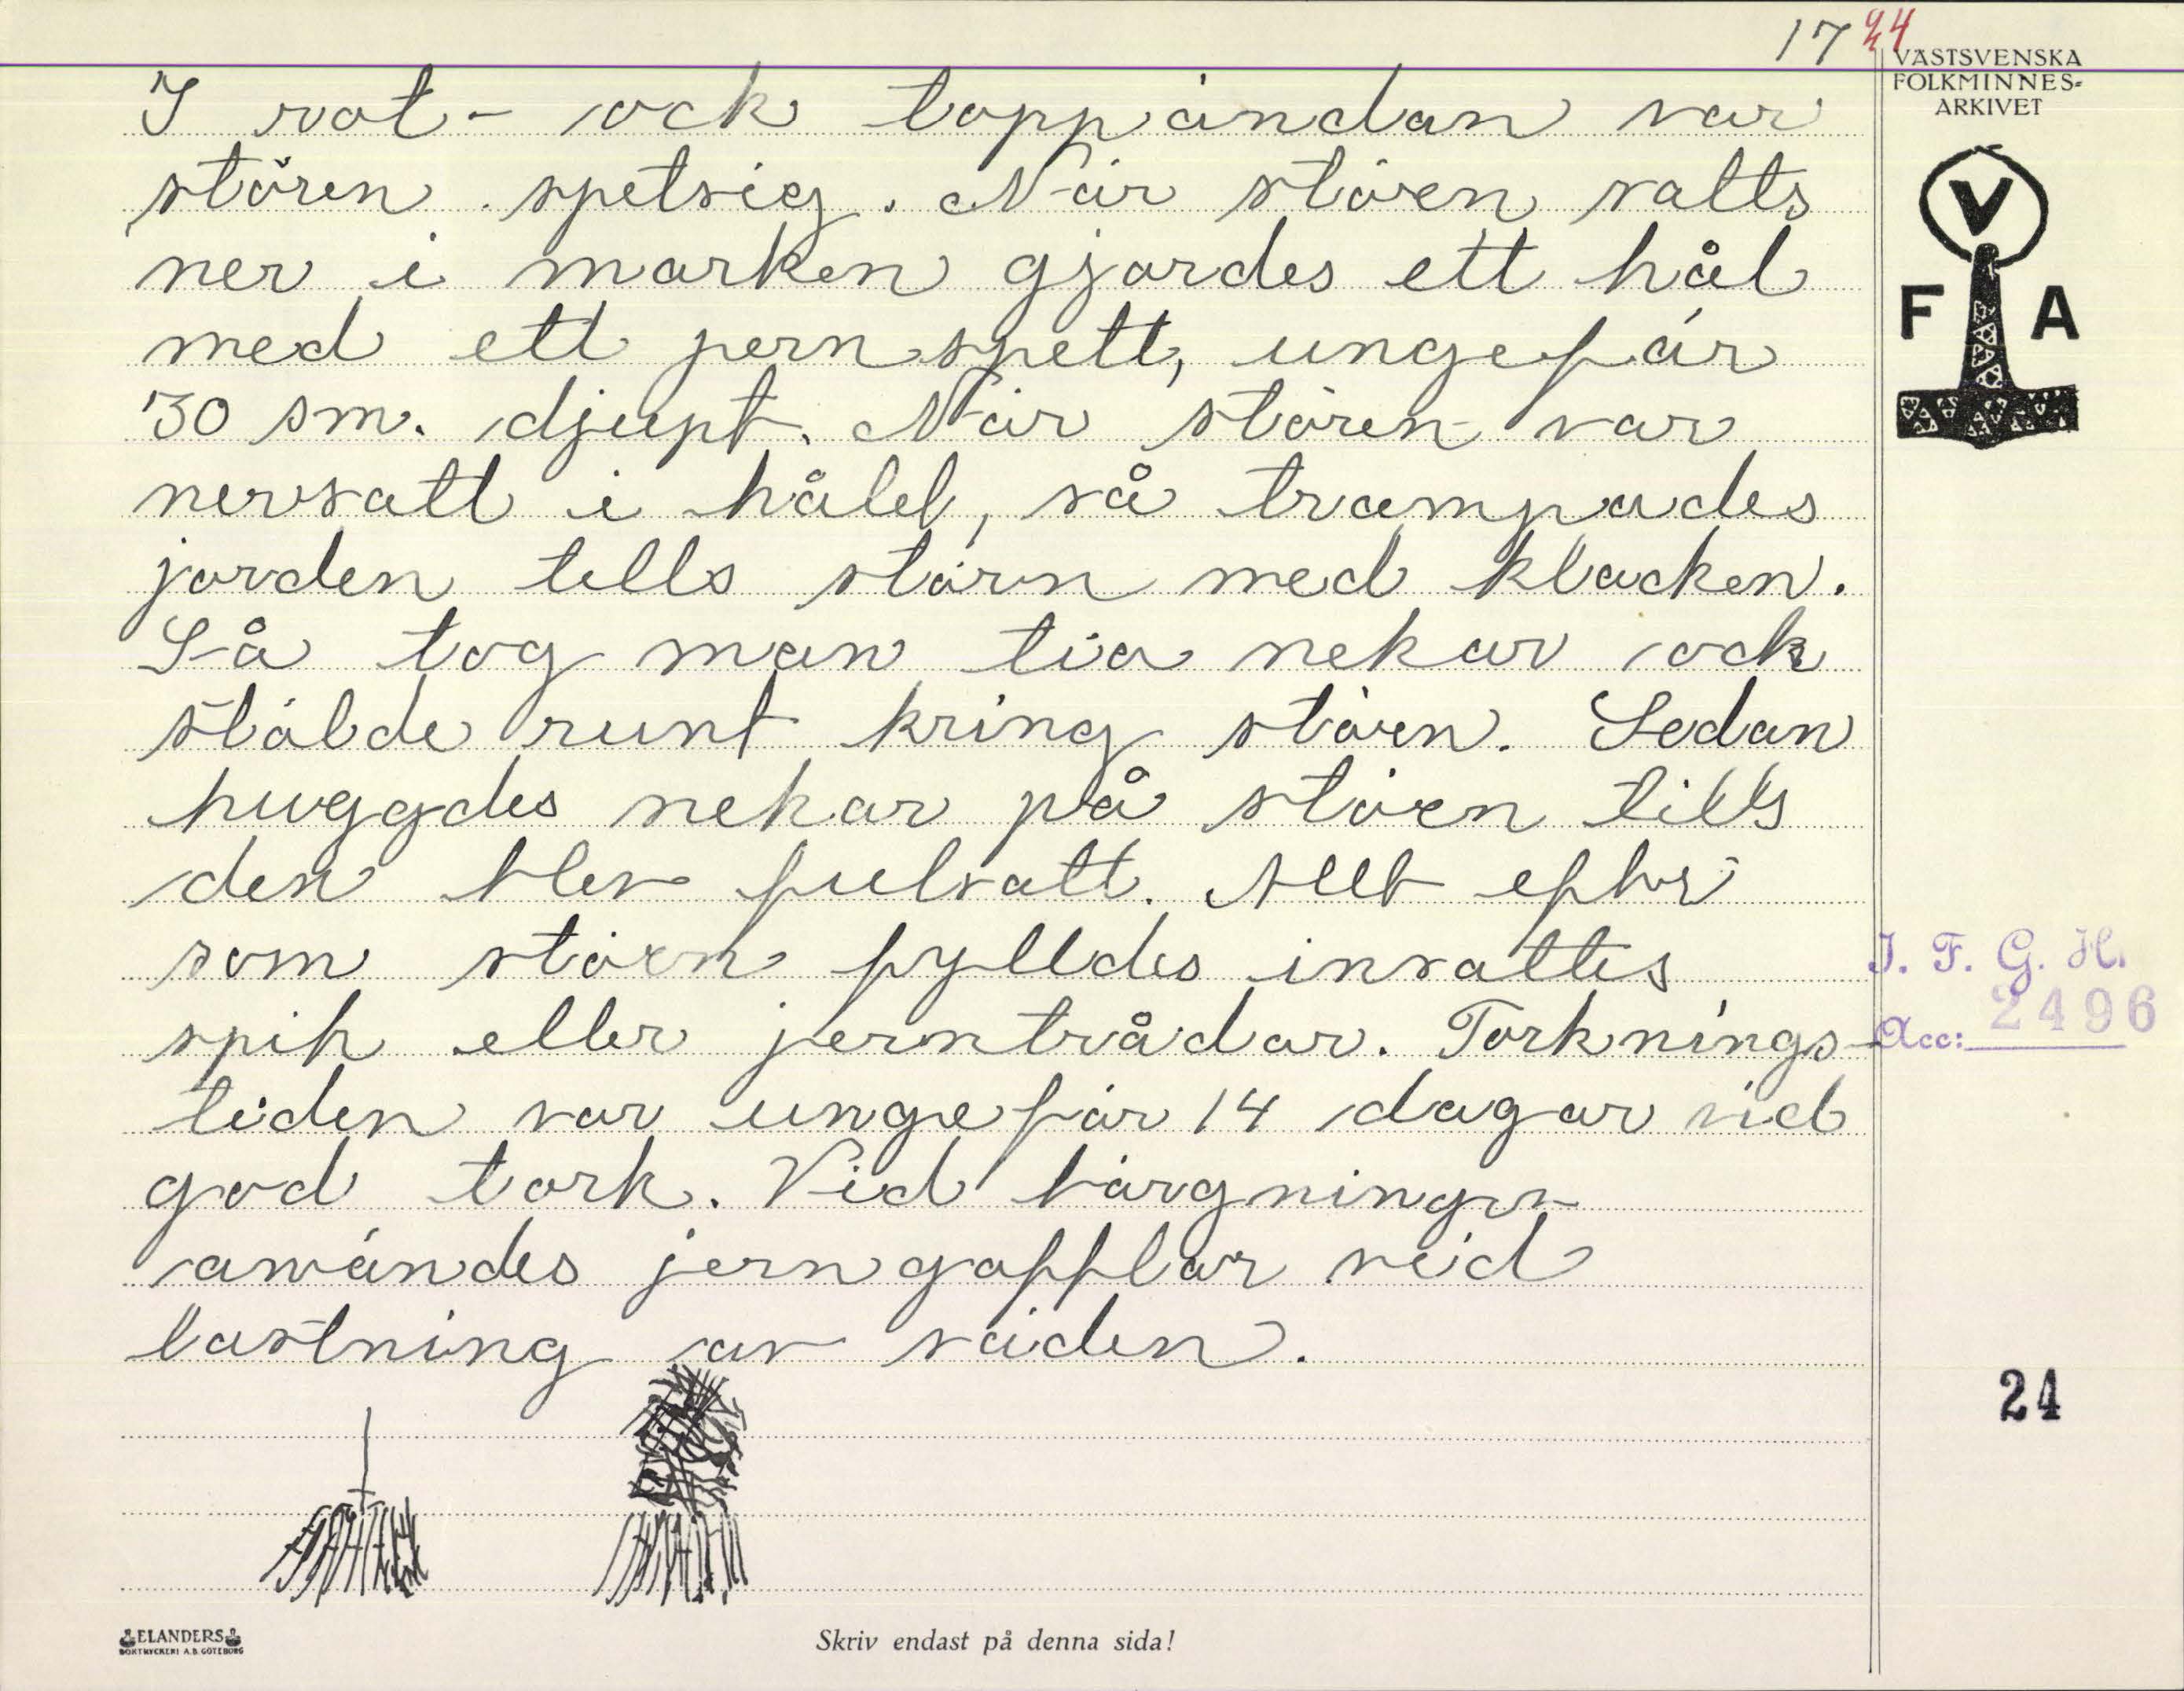 17 24
VÄSTSVENSKA
FOLKMINNES-
ARKIVET
V
F A
I rot- ock toppändan var
stören spetsig. När stören satts
ner i marken gjordes ett hål
med ett jernspett, ungefär
30 sm. djupt. När stören var
nersatt i hålet, så trampades
jorden tells störn med klacken.
Så tog man tio nekar ock
stälde runt kring stören. Sedan
huggdes nekar på stören tills
den blev fulsatt. Allt efter
som stören fylldes insattes
spik eller jerntrådar. Torknings-
tiden var ungefär 14 dagar vid
god tork. Vid bärgningen
anvándes jerngafflar veid
lastning av säden.
I. F. G. H.
Acc: 2496
24
ELANDERS
BOKTRYCKERI A.B. GÖTEBORG
Skriv endast på denna sida!